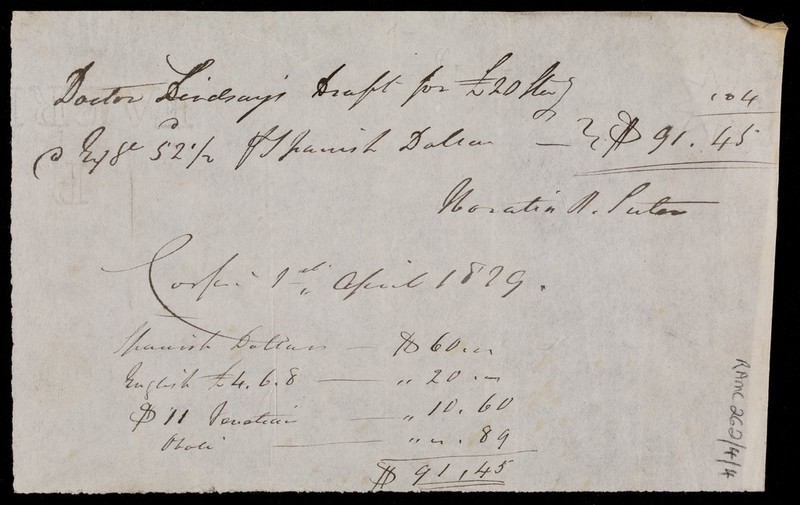 Doctor Lindsay's draft for £20 Sterg 104
@ Exge 52 1/2 d p Spanish Dollar — $ 91.45
Horatio
Corfu 1st April 1829.
Spanish Dollars — $ 60 "
English £4.6.8 — " 20 "
$ 11 Venetian — " 10.60
Oboli — " " .89
$ 91,45
RAMC 262/4/4